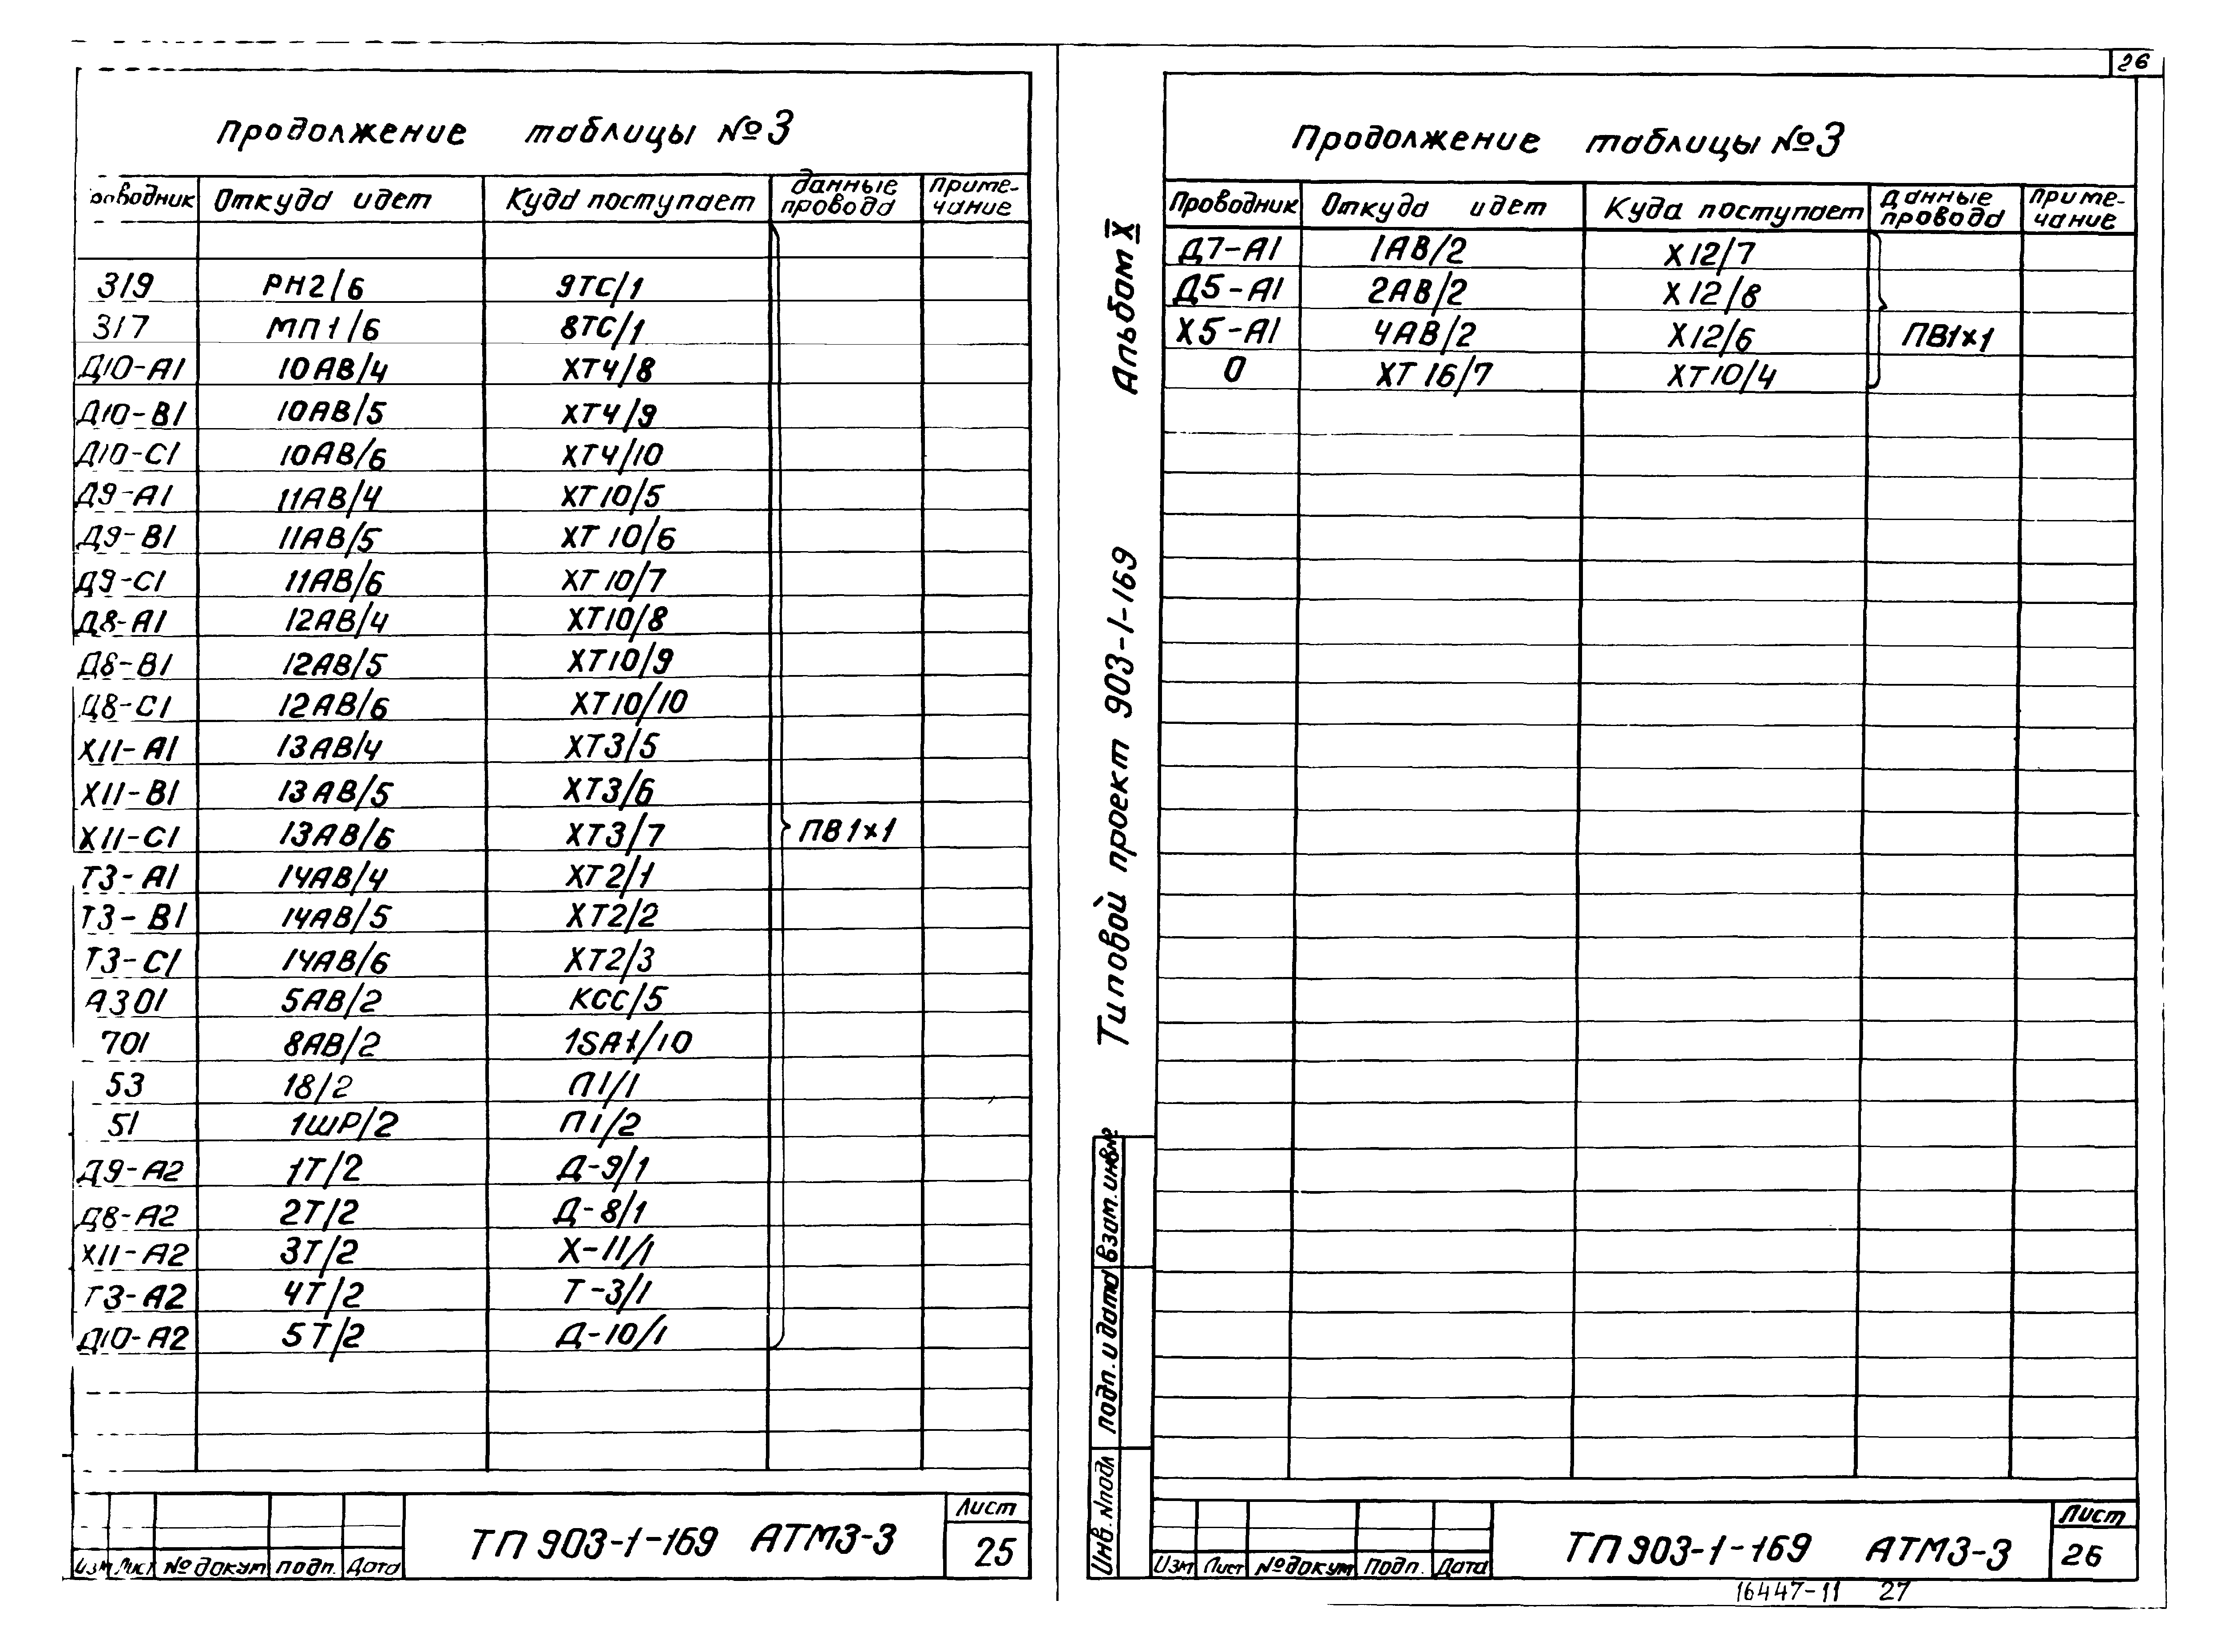 Продолжение таблицы №3
роводник Откуда идет Куда поступает данные провода Приме-чание
319 РН2/6 9ТС/1
317 МП1/6 8ТС/1
Д10-А1 10АВ/4 ХТ4/8
Д10-В1 10АВ/5 ХТ4/9
Д10-С1 10АВ/6 ХТ4/10
Д9-А1 11АВ/4 ХТ10/5
Д9-В1 11АВ/5 ХТ10/6
Д9-С1 11АВ/6 ХТ10/7
Д8-А1 12АВ/4 ХТ10/8
Д8-В1 12АВ/5 ХТ10/9
Д8-С1 12АВ/6 ХТ10/10
Х11-А1 13АВ/4 ХТ3/5
Х11-В1 13АВ/5 ХТ3/6
Х11-С1 13АВ/6 ХТ3/7 ПВ1х1
Т3-А1 14АВ/4 ХТ2/1
Т3-В1 14АВ/5 ХТ2/2
Т3-С1 14АВ/6 ХТ2/3
А301 5АВ/2 КСС/5
701 8АВ/2 1SA1/10
53 18/2 П1/1
51 1ШР/2 П1/2
Д9-А2 1Т/2 Д-9/1
Д8-А2 2Т/2 Д-8/1
Х11-А2 3Т/2 Х-11/1
Т3-А2 4Т/2 Т-3/1
Д10-А2 5Т/2 Д-10/1
Изм Лист №докум подп. Дата
ТП 903-1-169 АТМ3-3
Лист
25
26
Продолжение таблицы №3
Проводник Откуда идет Куда поступает данные провода Приме-чание
Д7-А1 1АВ/2 Х12/7
Д5-А1 2АВ/2 Х12/8
Х5-А1 4АВ/2 Х12/6 ПВ1х1
0 ХТ16/7 ХТ10/4
Альбом X
Типовой проект 903-1-169
Взам.инв№
подп. и дата
Инв.№подл
Изм Лист №докум Подп. Дата
ТП 903-1-169 АТМ3-3
Лист
26
16447-11 27